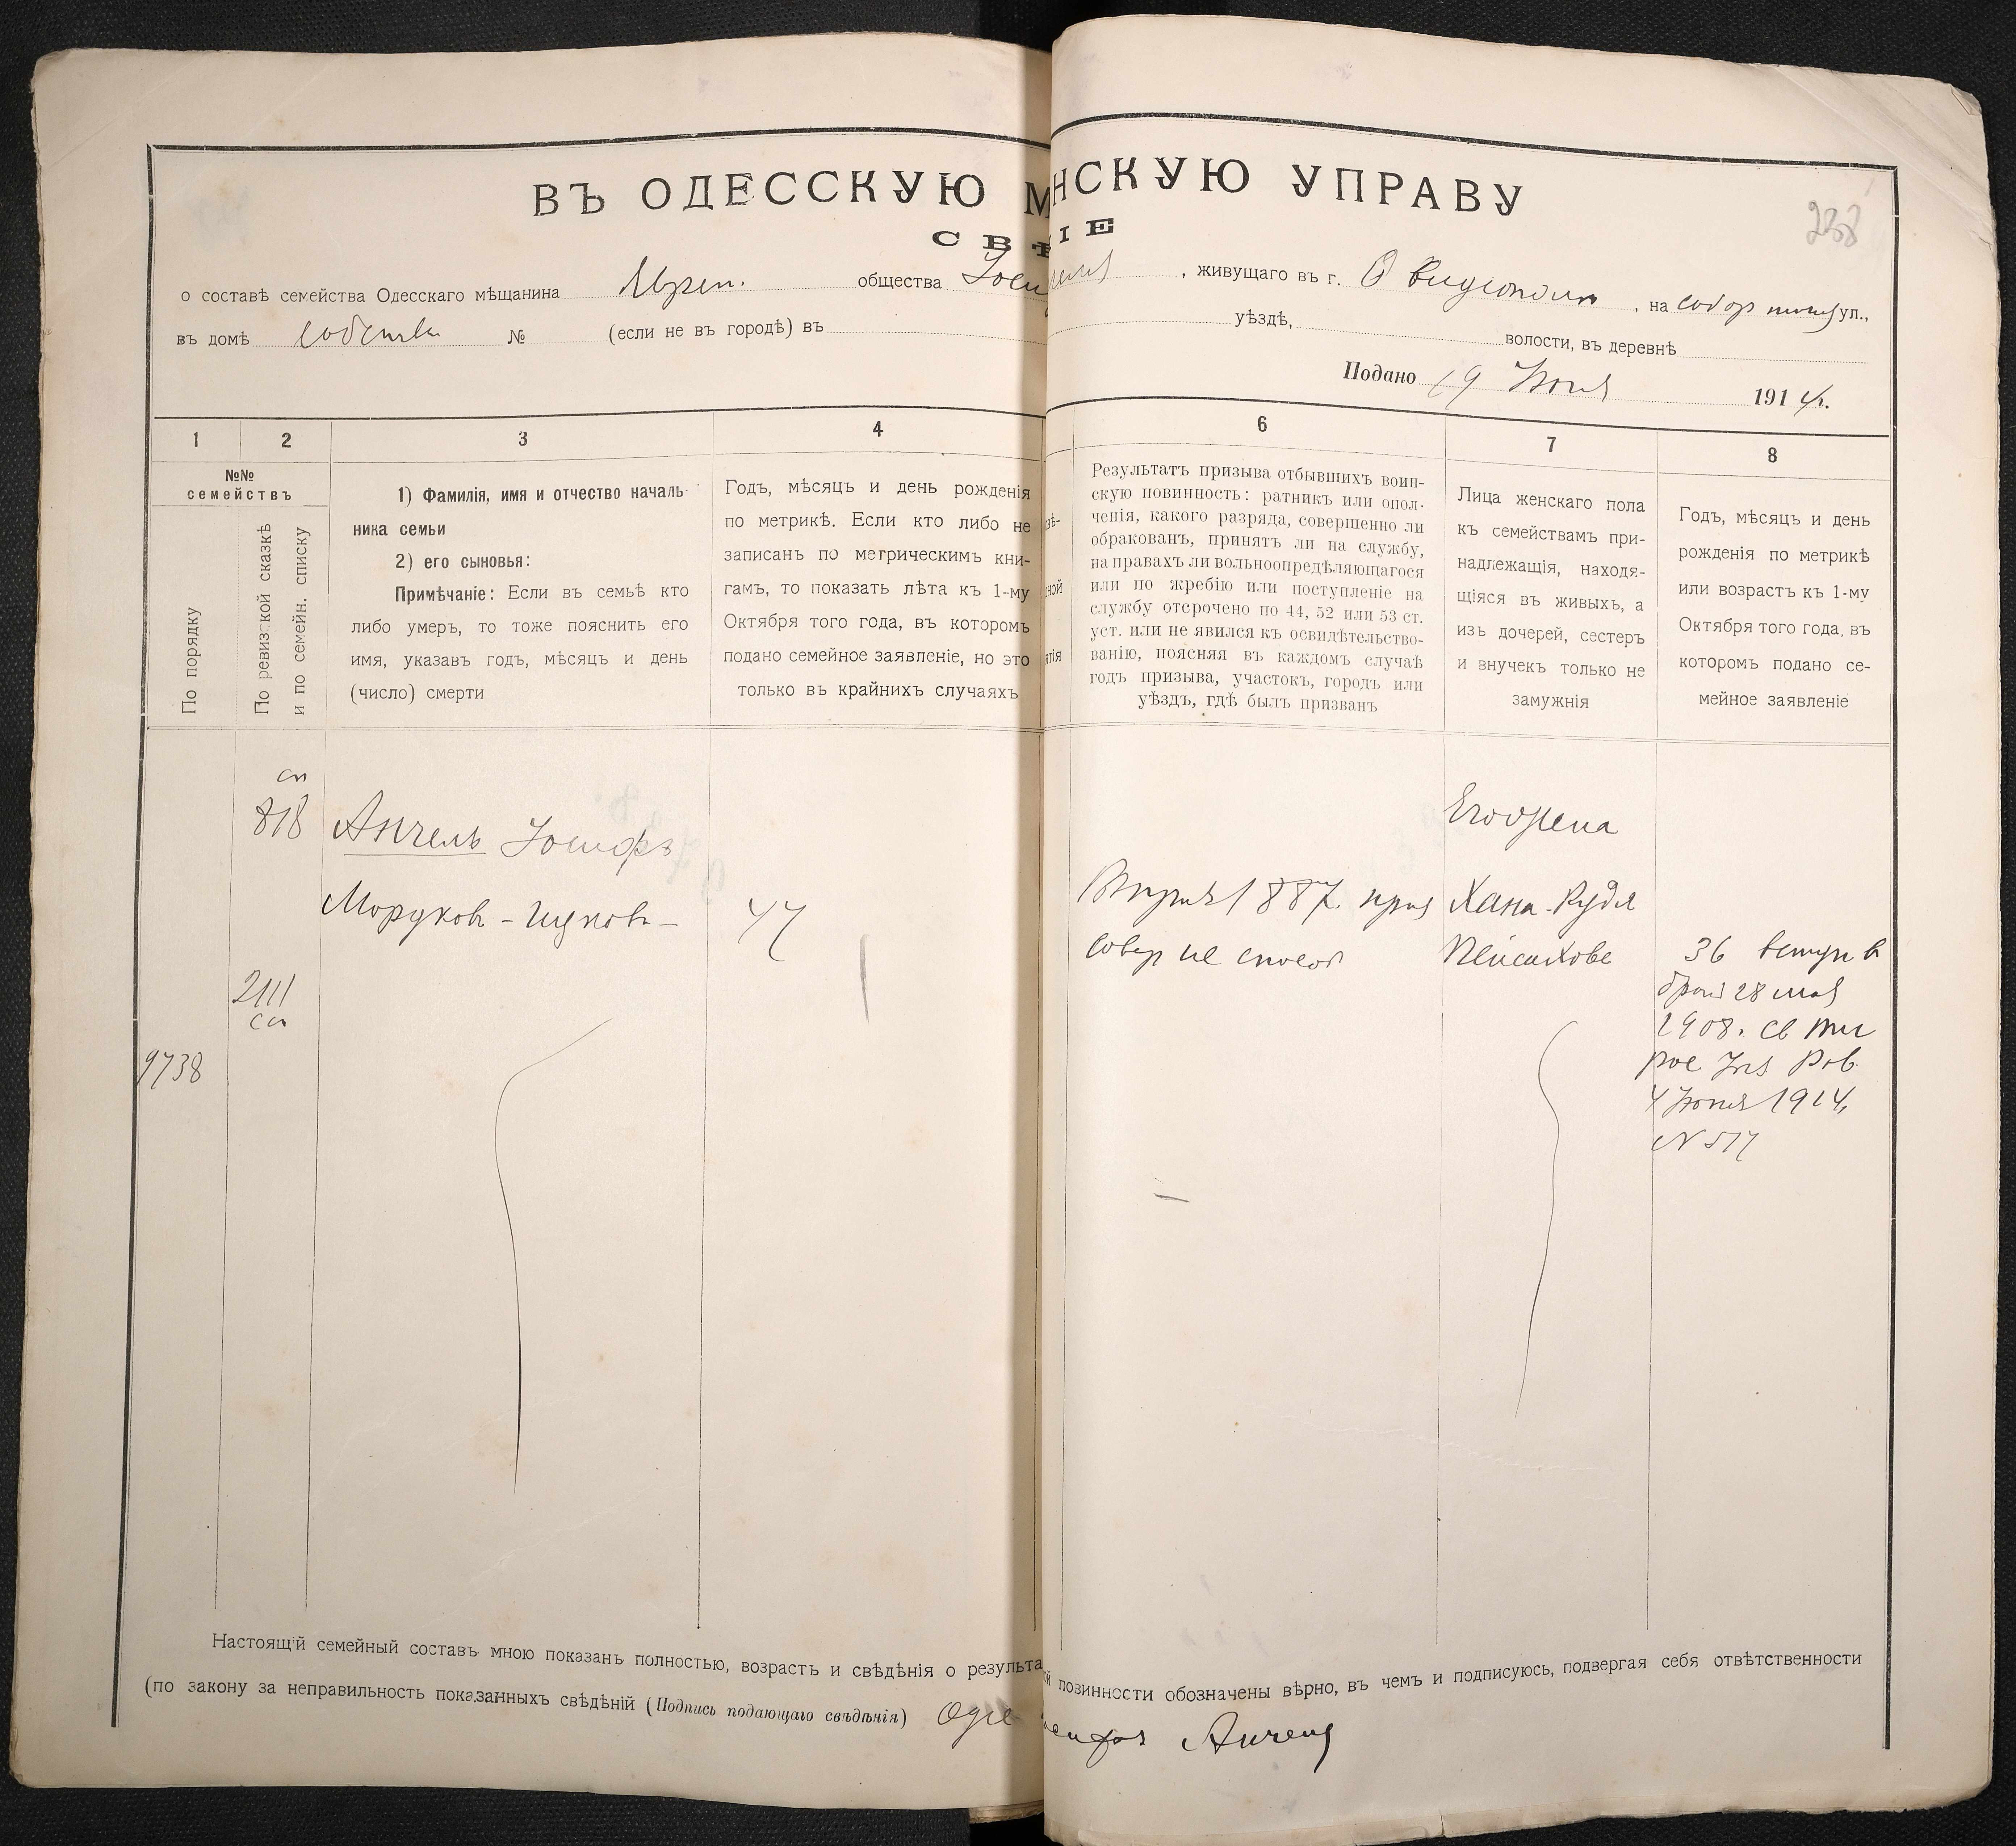 ВЪ ОДЕССКУЮ М
НСКУЮ УПРАВУ
238
СВѢ
ІЕ
о составѣ семейства Одесскаго мѣщанина Еврей. общества Іоси
, живущаго въ г. Овидіополѣ , на собор площ ул.,
въ домѣ собствен № (если не въ городѣ) въ
уѣздѣ, волости, въ деревнѣ
Подано 19 Іюня 1914 г.
1 2 3 4
6 7 8
№№
семействъ
По порядку
По ревизской сказкѣ
и по семейн. списку
1) Фамилія, имя и отчество началь
ника семьи
2) его сыновья:
Примѣчаніе: Если въ семьѣ кто
либо умеръ, то тоже пояснить его
имя, указавъ годъ, мѣсяцъ и день
(число) смерти
Годъ, мѣсяцъ и день рожденія
по метрикѣ. Если кто либо не
записанъ по метрическимъ кни-
гамъ, то показать лѣта къ 1-му
Октября того года, въ которомъ
подано семейное заявленіе, но это
только въ крайнихъ случаяхъ
вѣ-
ной
тія
Результатъ призыва отбывшихъ воин-
скую повинность: ратникъ или опол-
ченія, какого разряда, совершенно ли
обракованъ, принятъ ли на службу,
на правахъ ли вольноопредѣляющагося
или по жребію или поступленіе на
службу отсрочено по 44, 52 или 53 ст.
уст. или не явился къ освидѣтельство-
ванію, поясняя въ каждомъ случаѣ
годъ призыва, участокъ, городъ или
уѣздъ, гдѣ былъ призванъ
Лица женскаго пола
къ семействамъ при-
надлежащія, находя-
щіяся въ живыхъ, а
изъ дочерей, сестеръ
и внучекъ только не
замужнія
Годъ, мѣсяцъ и день
рожденія по метрикѣ
или возрастъ къ 1-му
Октября того года, въ
которомъ подано се-
мейное заявленіе
сп
818
Анчель Іосифъ
Мордковъ - Ицковъ -
47
2111
сп
9738
1887. приз
совер не способ
Его жена
Хана-Рудя
Пейсахова
36 вступ в
бракъ 28 мая
1908. св
Рав.
4 Іюня 1914.
N 517
Настоящій семейный составъ мною показанъ полностью, возрастъ и свѣдѣнія о результа
й повинности обозначены вѣрно, въ чемъ и подписуюсь, подвергая себя отвѣтственности
(по закону за неправильность показанныхъ свѣдѣній (Подпись подающаго свѣдѣнія) Оде
Анчель